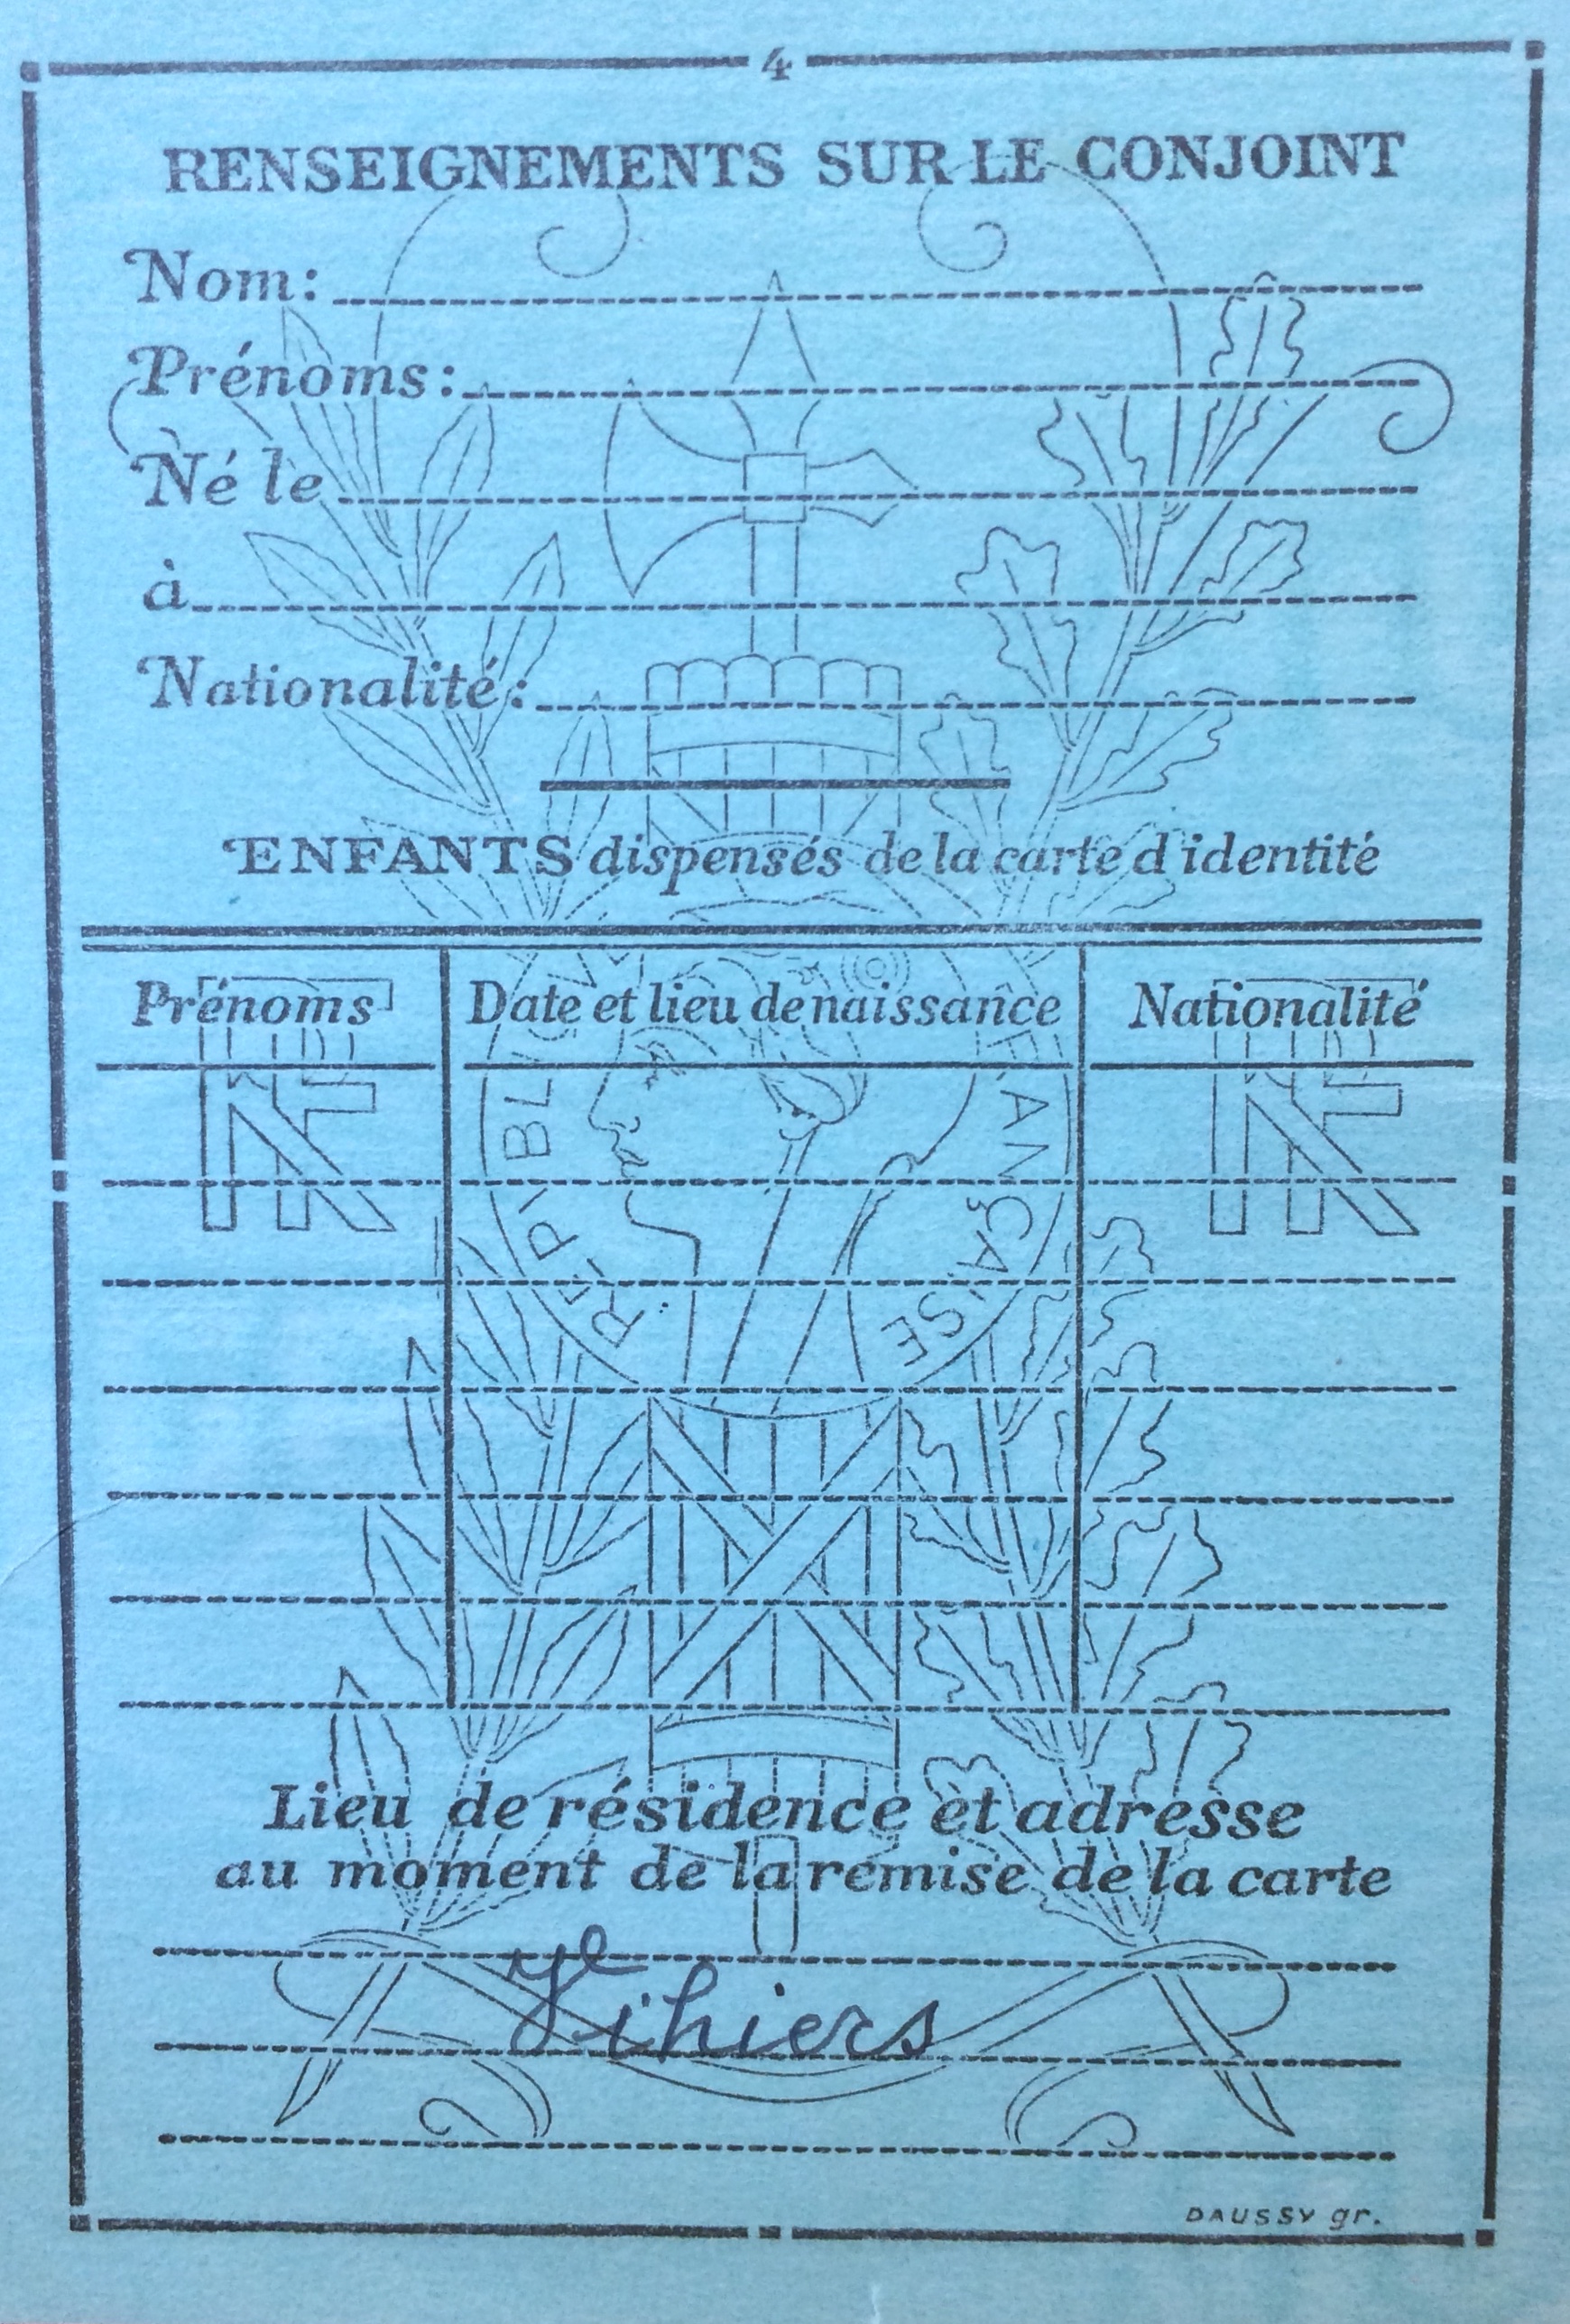 4
RENSEIGNEMENTS SUR LE CONJOINT
Nom:
Prénoms:
Né le
à
Nationalité:
ENFANTS dispensés de la carte d'identité
Prénoms Date et lieu de naissance Nationalité
RF RÉPUBLIQUE FRANÇAISE RF
Lieu de résidence et adresse
au moment de la remise de la carte
DAUSSY gr.